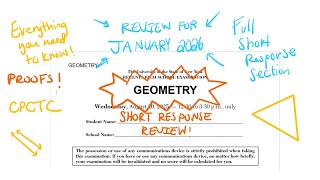 Everything
you need
to know!
REVIEW FOR
JANUARY 2026
Full
Short
Response
Section
GEOMETRY
The University of the State of New York
REGENTS HIGH SCHOOL EXAMINATION
PROOFS!
GEOMETRY
CPCTC
Wednesday, August 20, 2025 — 12:30 to 3:30 p.m., only
SHORT RESPONSE
REVIEW!
Student Name:
School Name:
The possession or use of any communications device is strictly prohibited when taking
this examination. If you have or use any communications device, no matter how briefly,
your examination will be invalidated and no score will be calculated for you.